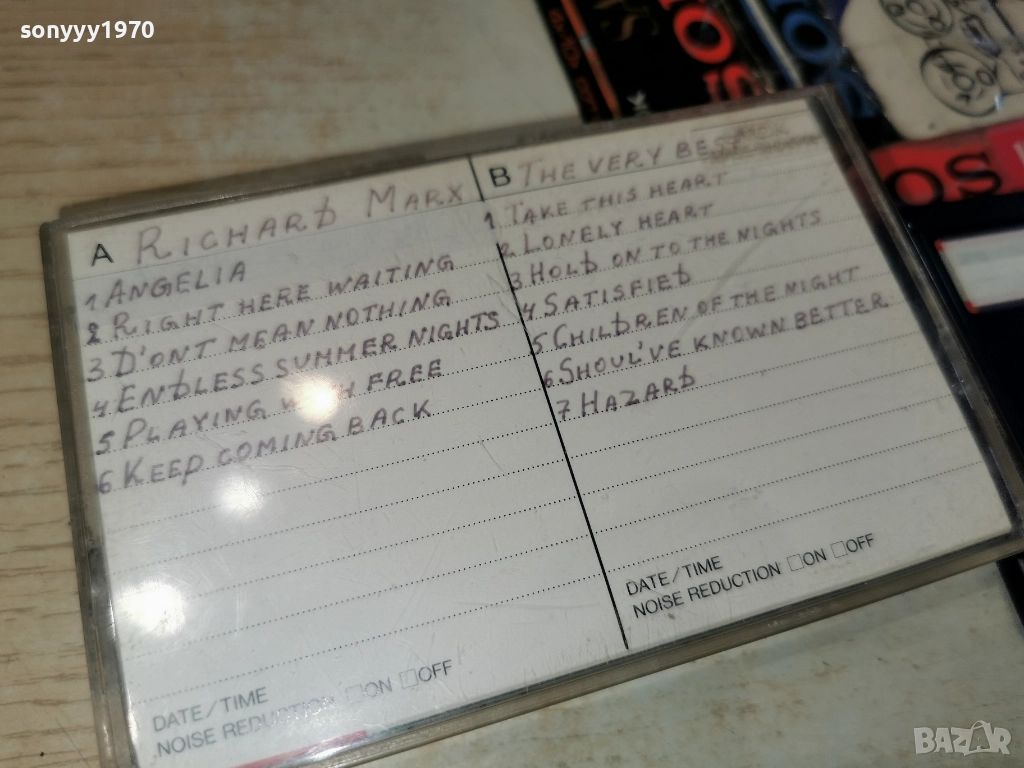 sonyyy1970
A RICHARD MARX
1 ANGELIA
2 RIGHT HERE WAITING
3 D'ONT MEAN NOTHING
4 ENDLESS SUMMER NIGHTS
5 PLAYING WITH FREE
6 KEEP COMING BACK
DATE/TIME
NOISE REDUCTION ☐ON ☐OFF
B THE VERY BEST
1 TAKE THIS HEART
2 LONELY HEART
3 HOLD ON TO THE NIGHTS
4 SATISFIED
5 CHILDREN OF THE NIGHT
6 SHOUL'VE KNOWN BETTER.
7 HAZARD
DATE/TIME
NOISE REDUCTION ☐ON ☐OFF
OS
BAZAR